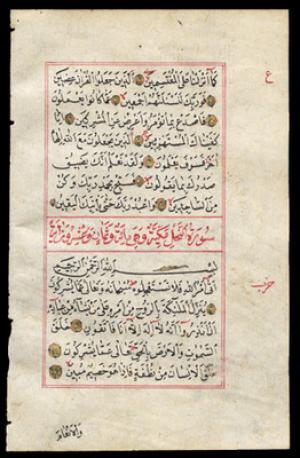 ع
كَمَا أَنْزَلْنَا عَلَى الْمُقْتَسِمِينَ الَّذِينَ جَعَلُوا الْقُرْآنَ عِضِينَ
فَوَرَبِّكَ لَنَسْئَلَنَّهُمْ أَجْمَعِينَ عَمَّا كَانُوا يَعْمَلُونَ
فَاصْدَعْ بِمَا تُؤْمَرُ وَأَعْرِضْ عَنِ الْمُشْرِكِينَ إِنَّا
كَفَيْنَاكَ الْمُسْتَهْزِئِينَ الَّذِينَ يَجْعَلُونَ مَعَ اللَّهِ إِلَهًا
آخَرَ فَسَوْفَ يَعْلَمُونَ وَلَقَدْ نَعْلَمُ أَنَّكَ يَضِيقُ
صَدْرُكَ بِمَا يَقُولُونَ فَسَبِّحْ بِحَمْدِ رَبِّكَ وَكُنْ
مِنَ السَّاجِدِينَ وَاعْبُدْ رَبَّكَ حَتَّى يَأْتِيَكَ الْيَقِينُ
سورة النحل مكية وهي مائة وثمان وعشرون آية
بِسْمِ اللَّهِ الرَّحْمَنِ الرَّحِيمِ
حزب
أَتَى أَمْرُ اللَّهِ فَلَا تَسْتَعْجِلُوهُ سُبْحَانَهُ وَتَعَالَى عَمَّا يُشْرِكُونَ
يُنَزِّلُ الْمَلَائِكَةَ بِالرُّوحِ مِنْ أَمْرِهِ عَلَى مَنْ يَشَاءُ مِنْ عِبَادِهِ
أَنْ أَنْذِرُوا أَنَّهُ لَا إِلَهَ إِلَّا أَنَا فَاتَّقُونِ خَلَقَ
السَّمَوَاتِ وَالْأَرْضَ بِالْحَقِّ تَعَالَى عَمَّا يُشْرِكُونَ
خَلَقَ الْإِنْسَانَ مِنْ نُطْفَةٍ فَإِذَا هُوَ خَصِيمٌ مُبِينٌ
والانعام